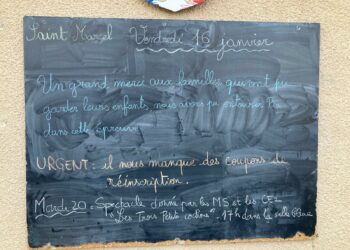 Saint Marcel Vendredi 16 janvier
Un grand merci aux familles qui ont pu
garder leurs enfants, nous avons pu entourer
dans cette épreuve.
URGENT : il nous manque des coupons de
réinscription.
Mardi 20 - Spectacle donné par les MS et les CE2
"Les Trois Petits cochons", 17h dans la salle